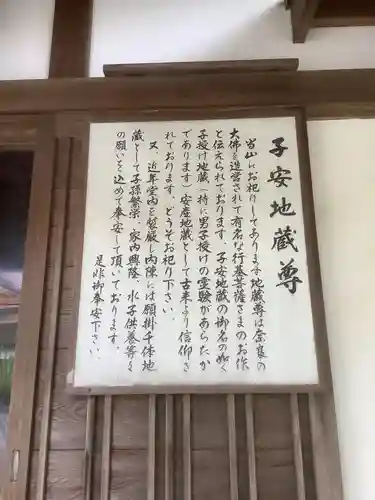 子安地蔵尊
当山にお祀りしてあります地蔵尊は奈良の
大佛を造営されて有名な行基菩薩さまのお作
と伝えられております。子安地蔵の御名の如く
子授け地蔵(特に男子授けの霊験があらたか
であります)安産地蔵として古来より信仰さ
れております。どうぞお祀り下さい。
又、近年堂内を荘厳し内陣には願掛千体地
蔵として子孫繁栄、家内興隆、水子供養等々
の願いを込めて奉安して頂いております。
是非御奉安下さい。